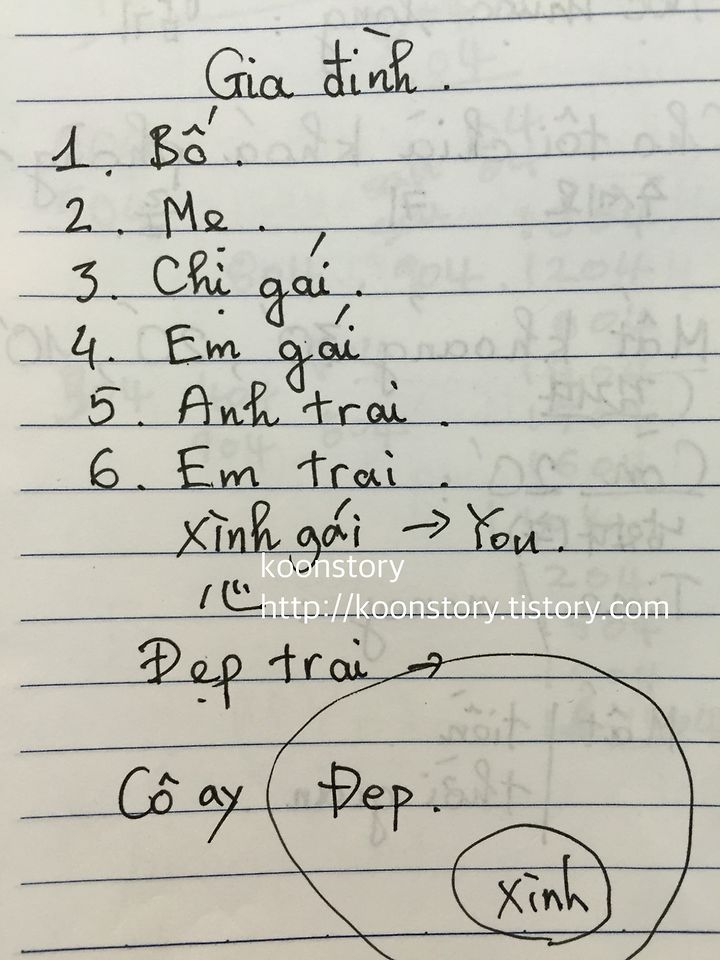 Gia đình.
1. Bố.
2. Mẹ.
3. Chị gái.
4. Em gái
5. Anh trai.
6. Em trai.
Xình gái → You.
koonstory
http://koonstory.tistory.com
Đẹp trai →
Cô ay Đẹp.
xình